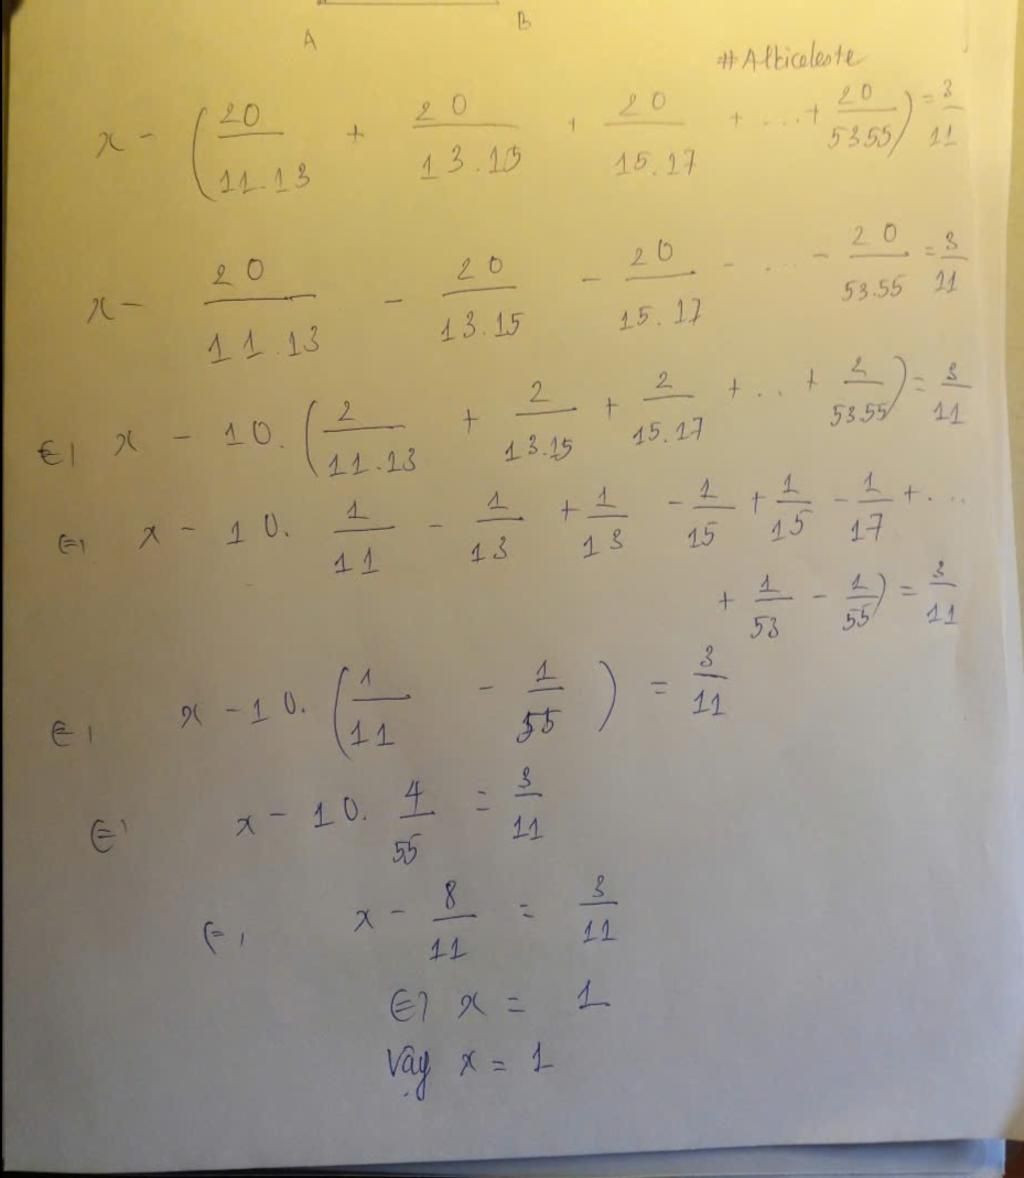 A B
#Albiceleste
x - (20/11.13 + 20/13.15 + 20/15.17 + ... + 20/53.55) = 3/11
x - 20/11.13 - 20/13.15 - 20/15.17 - ... - 20/53.55 = 3/11
⇔ x - 10. (2/11.13 + 2/13.15 + 2/15.17 + ... + 2/53.55) = 3/11
⇔ x - 10. 1/11 - 1/13 + 1/13 - 1/15 + 1/15 - 1/17 + ...
+ 1/53 - 1/55) = 3/11
⇔ x - 10. (1/11 - 1/55) = 3/11
⇔ x - 10. 4/55 = 3/11
⇔ x - 8/11 = 3/11
⇔ x = 1
Vậy x = 1